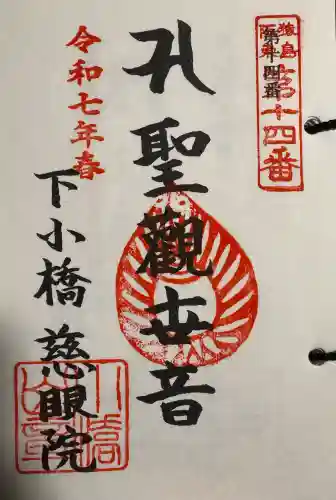 猿島
阪東 第十四番
第十四番
聖觀世音
令和七年春
下小橋 慈眼院